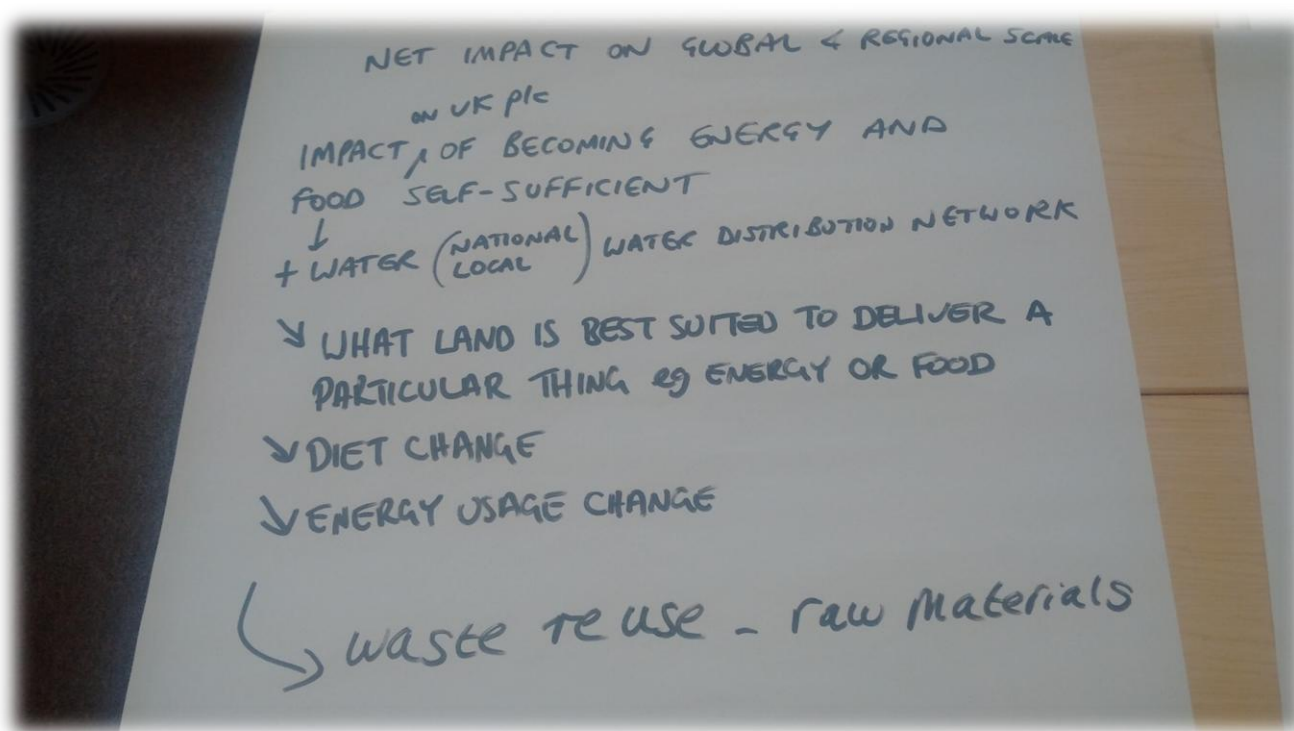 NET IMPACT ON GLOBAL & REGIONAL SCALE
ON UK plc
IMPACT ⁁ OF BECOMING ENERGY AND
FOOD SELF-SUFFICIENT
↓
+ WATER (NATIONAL LOCAL) WATER DISTRIBUTION NETWORK
↘ WHAT LAND IS BEST SUITED TO DELIVER A
PARTICULAR THING eg ENERGY OR FOOD
↘ DIET CHANGE
↘ ENERGY USAGE CHANGE
↳ waste reuse - raw materials